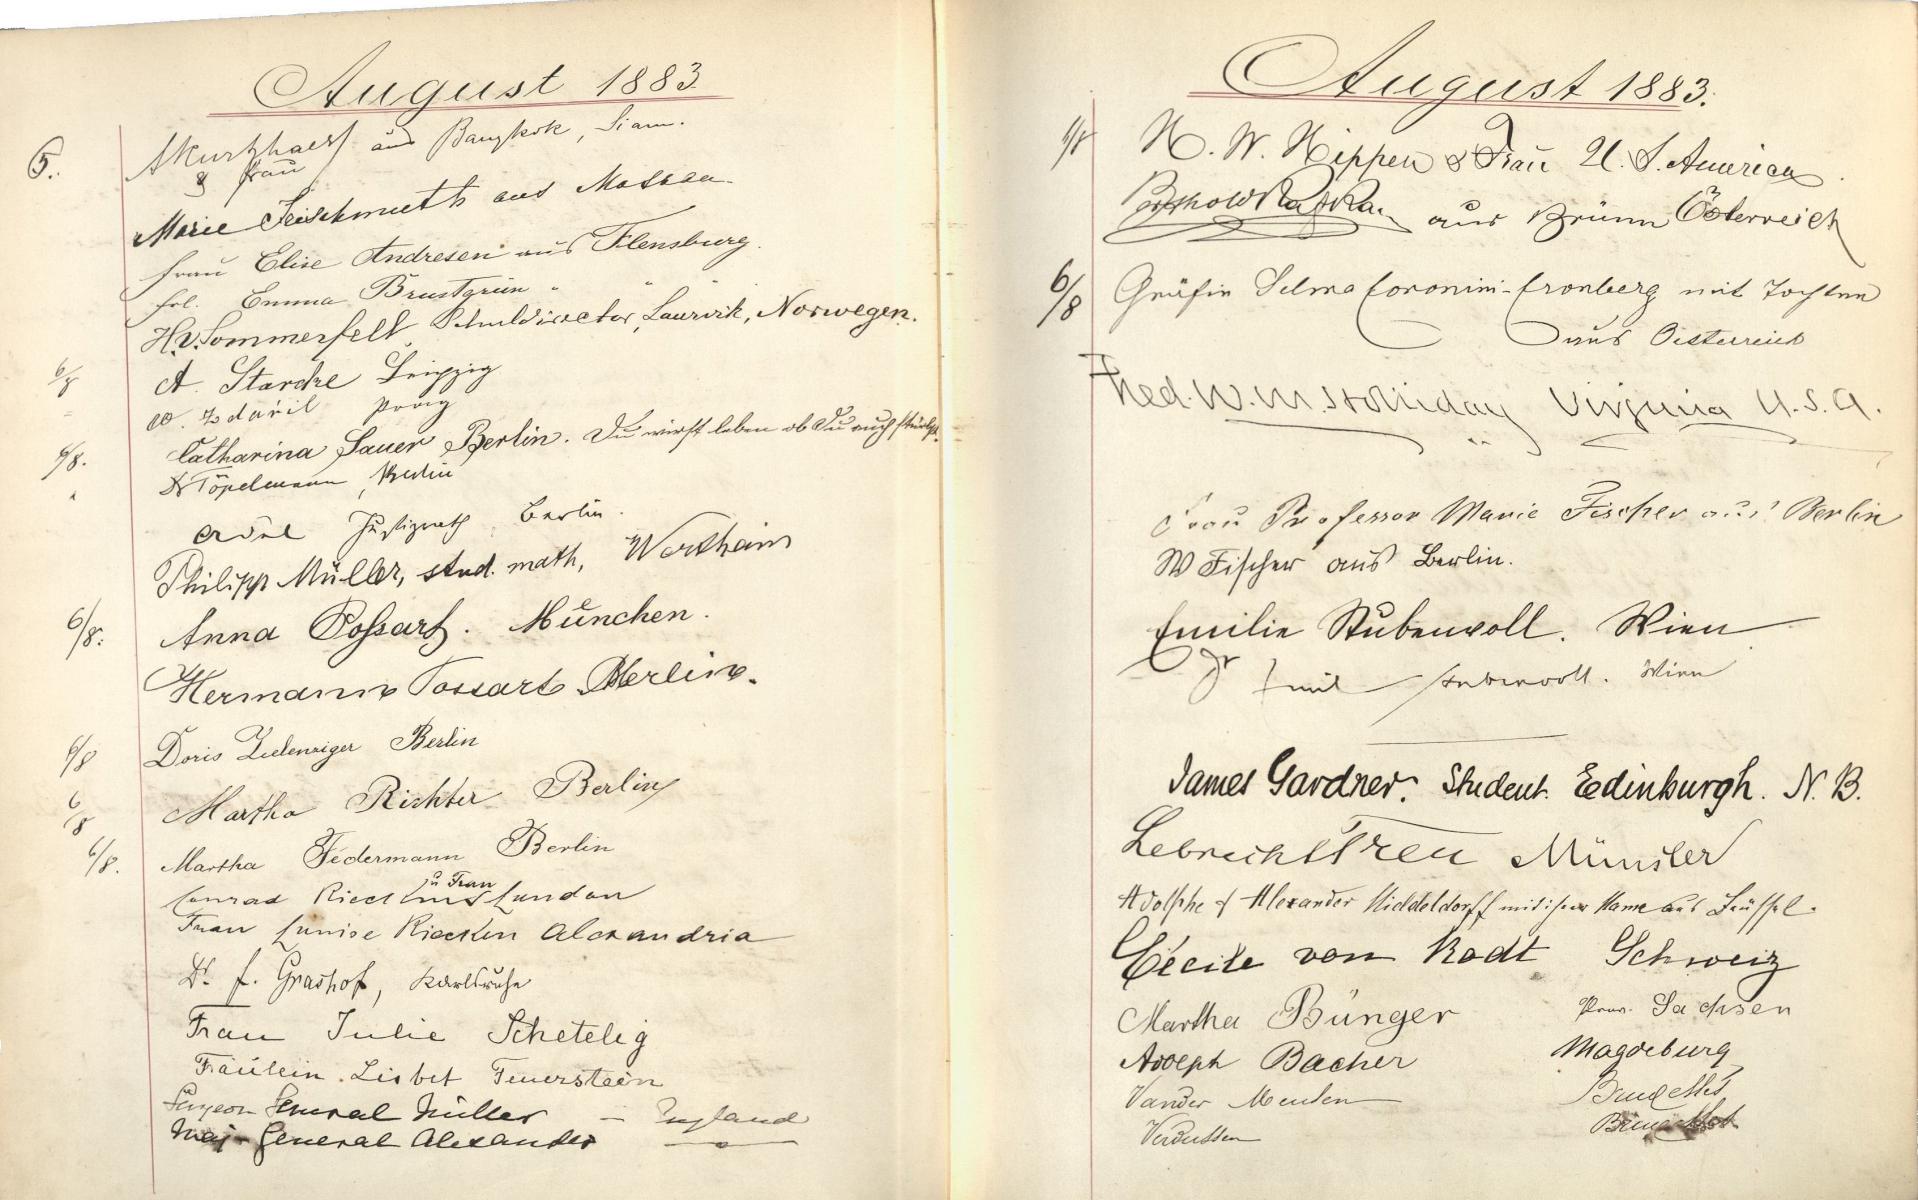 August 1883.
5. AKurtzhals aus Bangkok, Siam.
& Frau
Marie Feischmuth aus Moskau
Frau Elise Andresen aus Flensburg.
Frl. Emma Brustgrün " " "
H.v.Sommerfelt Schuldirector, Laurvik, Norwegen.
6/8 A. Starcke Leipzig
W. Zdaril Prag
6/8. Catharina Sauer Berlin. Du wirst leben ob Du auch stürbest.
" Dr Töpelmann, Berlin
Justizrath Berlin.
Philipp Müller, stud. math, Wertheim
6/8. Anna Possart. München.
Hermann Possart Berlin.
6/8 Doris Zielenziger Berlin
6/8 Martha Richter Berlin
6/8. Martha Federmann Berlin
u Frau
Conrad Riecken London
Frau Luise Riecken Alexandria
Dr. F. Grashof, Karlsruhe
Frau Julie Schetelig
Fräulein Lisbet Feuerstein
Surgeon General Müller — England
Maj- General Alexander
August 1883.
6/8 H. W. Hippen & Frau U. S. America
Berthold Kafka aus Brünn Österreich
6/8 Gräfin Selma Coronini-Cronberg mit Tochter
aus Oisterreich
Fred. W. M. Holliday Virginia U. S. A.
Frau Professor Marie Fischer aus Berlin
W Fischer aus Berlin.
Emilie Stubenvoll. Wien
Dr Emil Stubenvoll. Wien
James Gardner. Student. Edinburgh. N. B.
Lebrecht Treu Münster
Adolphe & Alexander Middeldorff mit ihrer Mama aus Brüssel.
Cécile von Rodt Schweiz
Martha Bünger Prov. Sachsen
Adolph Bacher Magdeburg
Vander Meulen Bruxelles
Verdussen Bruxelles